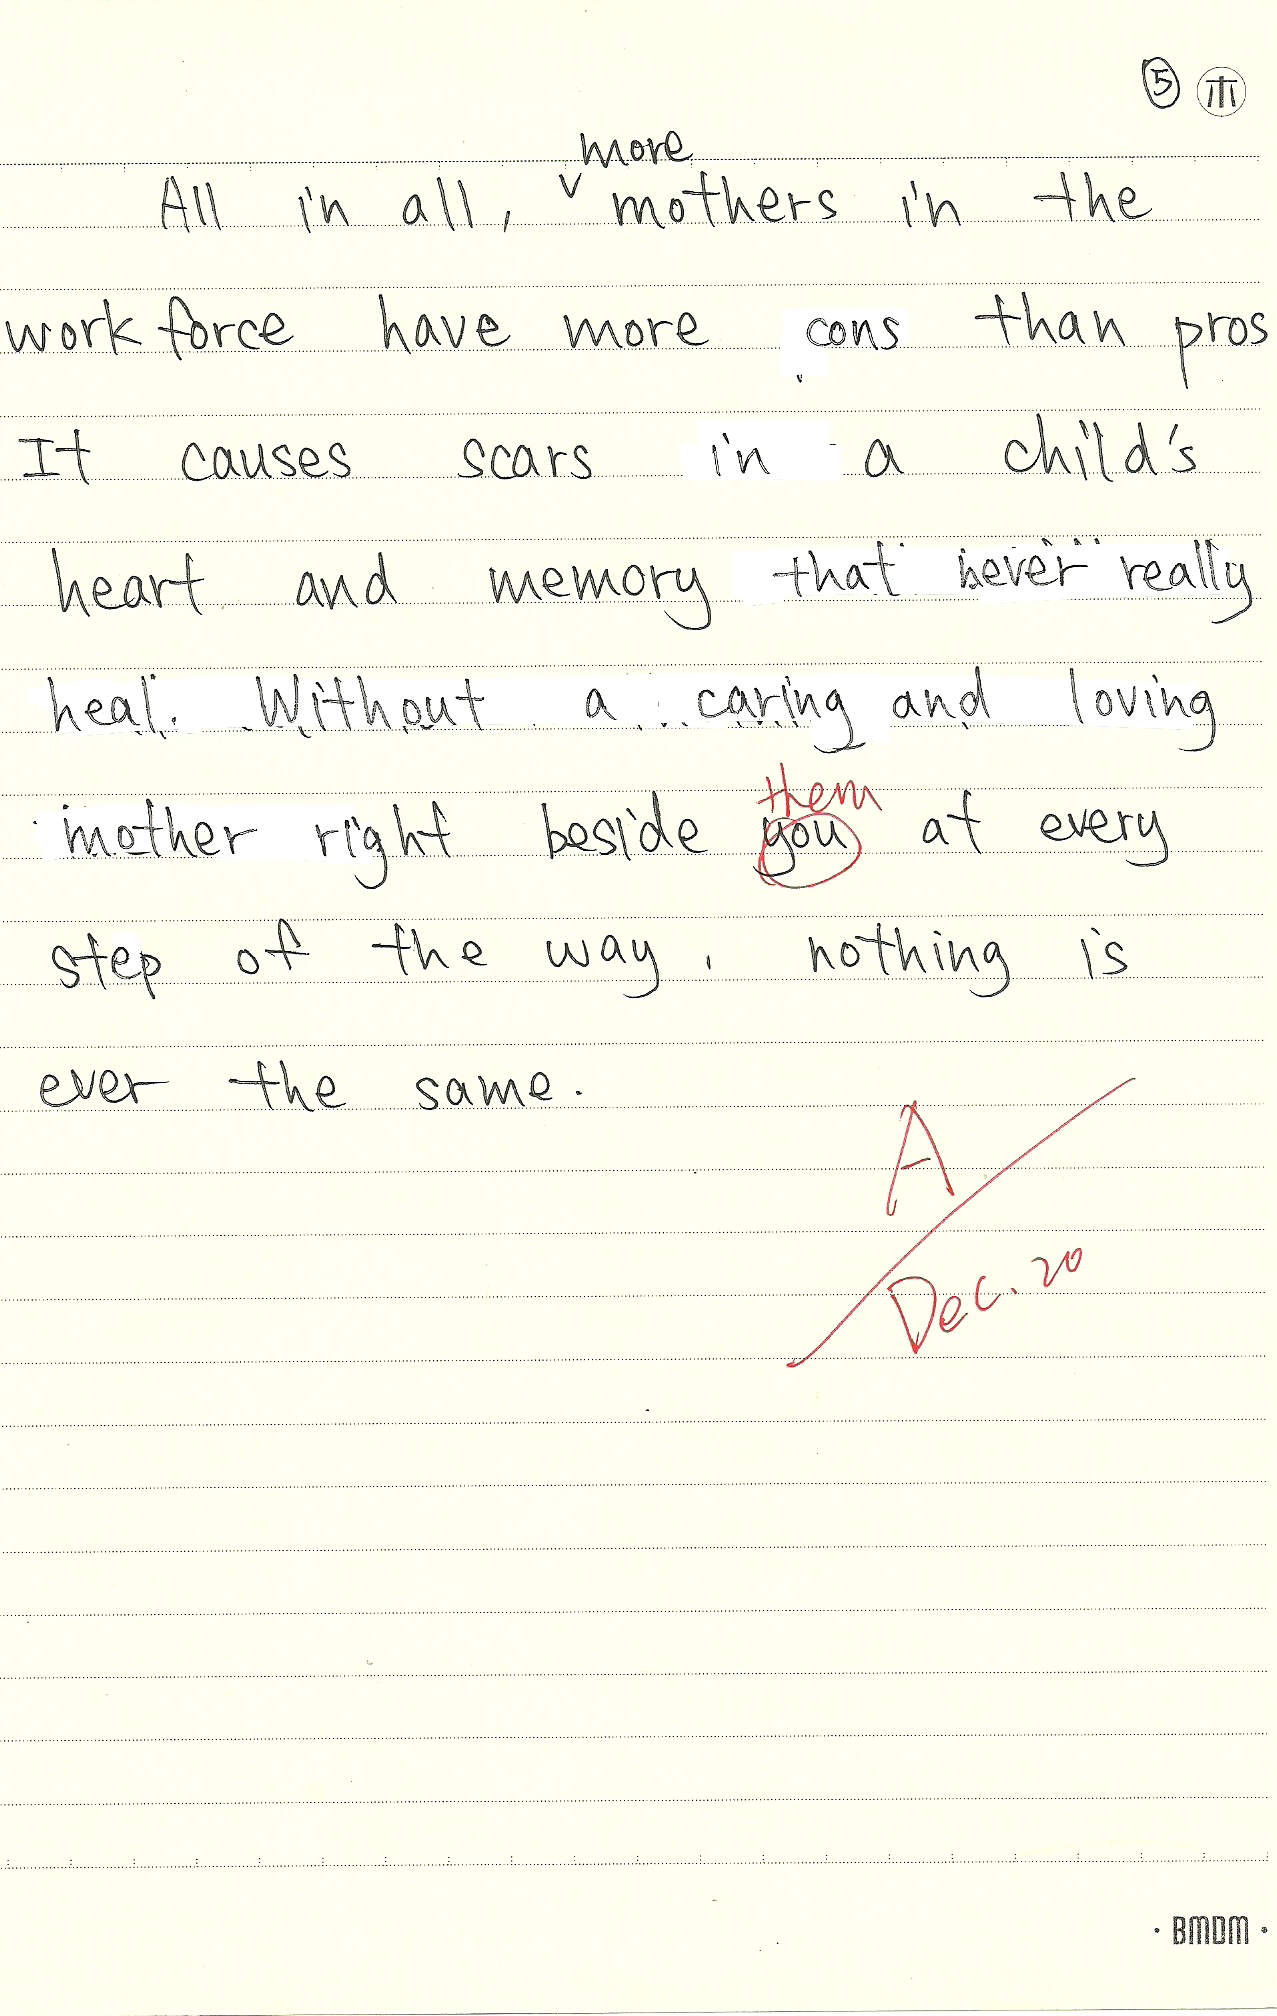 ⑤
more
All in all, ˅ mothers in the
workforce have more cons than pros
It causes scars in a child's
heart and memory that never really
heal. Without a caring and loving
them
mother right beside you at every
step of the way, nothing is
ever the same.
A
Dec. 20
· BMDM ·